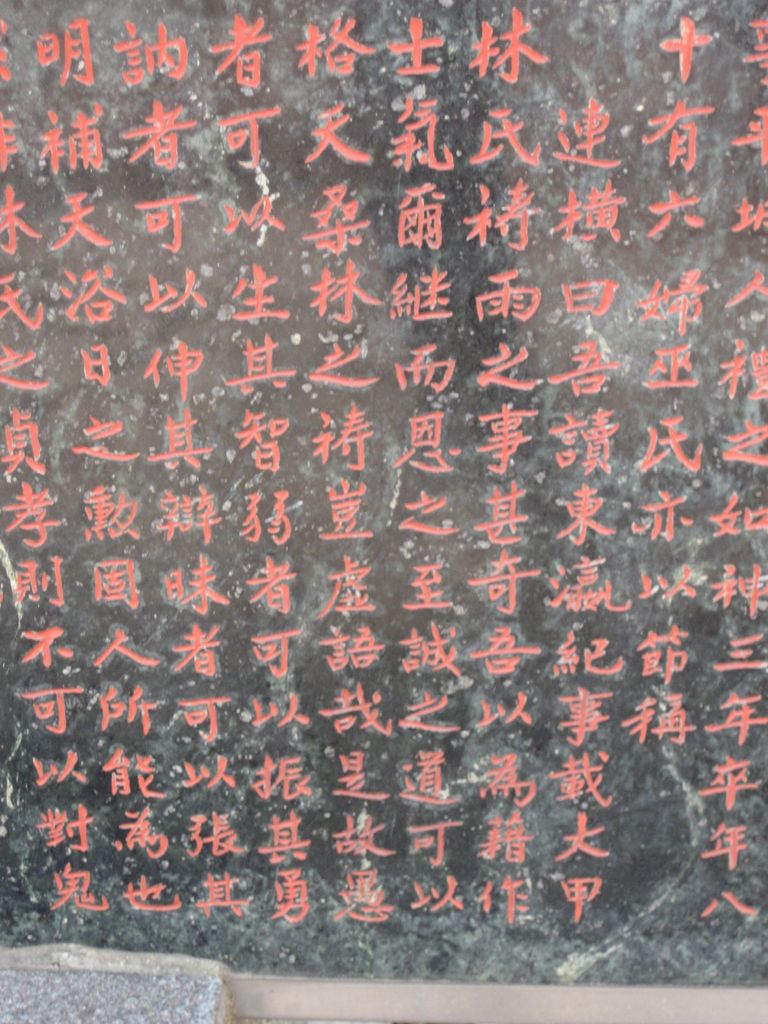 事平城人禮之如神三年卒年八
十有六婦巫氏亦以節稱
連橫曰吾讀東瀛紀事載大甲
林氏祷雨之事甚奇吾以為藉作
士氣爾継而恩之至誠之道可以
格天桑林之祷豈虛語哉是故愚
者可以生其智弱者可以振其勇
訥者可以伸其辯昧者可以張其
明補天浴日之勲固人所能為也
然非林氏之貞孝則不可以對鬼